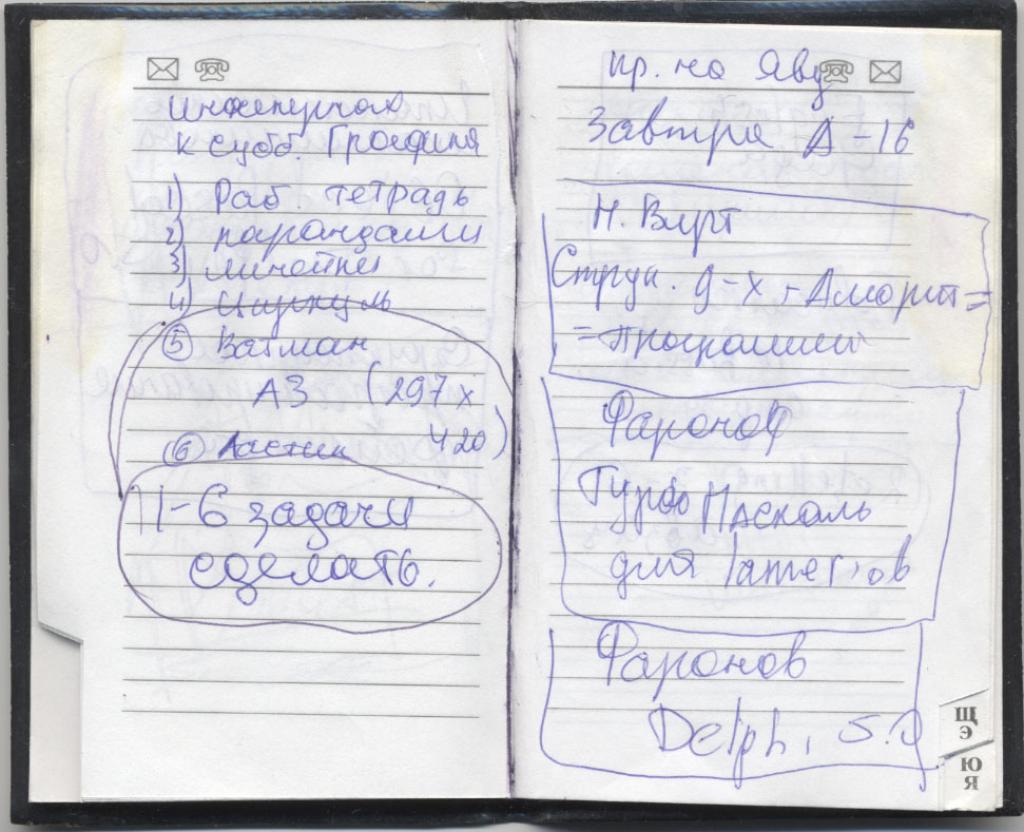 Инженерная
к субб. Графика
1) Раб. тетрадь
2) карандаши
3) линейки
4) Циркуль
5 Ватман
А3 (297 х
420)
6 Ластик
1-6 задачи
сделать.
пр. на Яву
Завтра А-16
Н. Вирт
Струк. д-х + Алгорит=
=Программы
Фаронов
Турбо Паскаль
для lamer'ов
Фаронов
Delphi 5.0
Щ
Э
Ю
Я